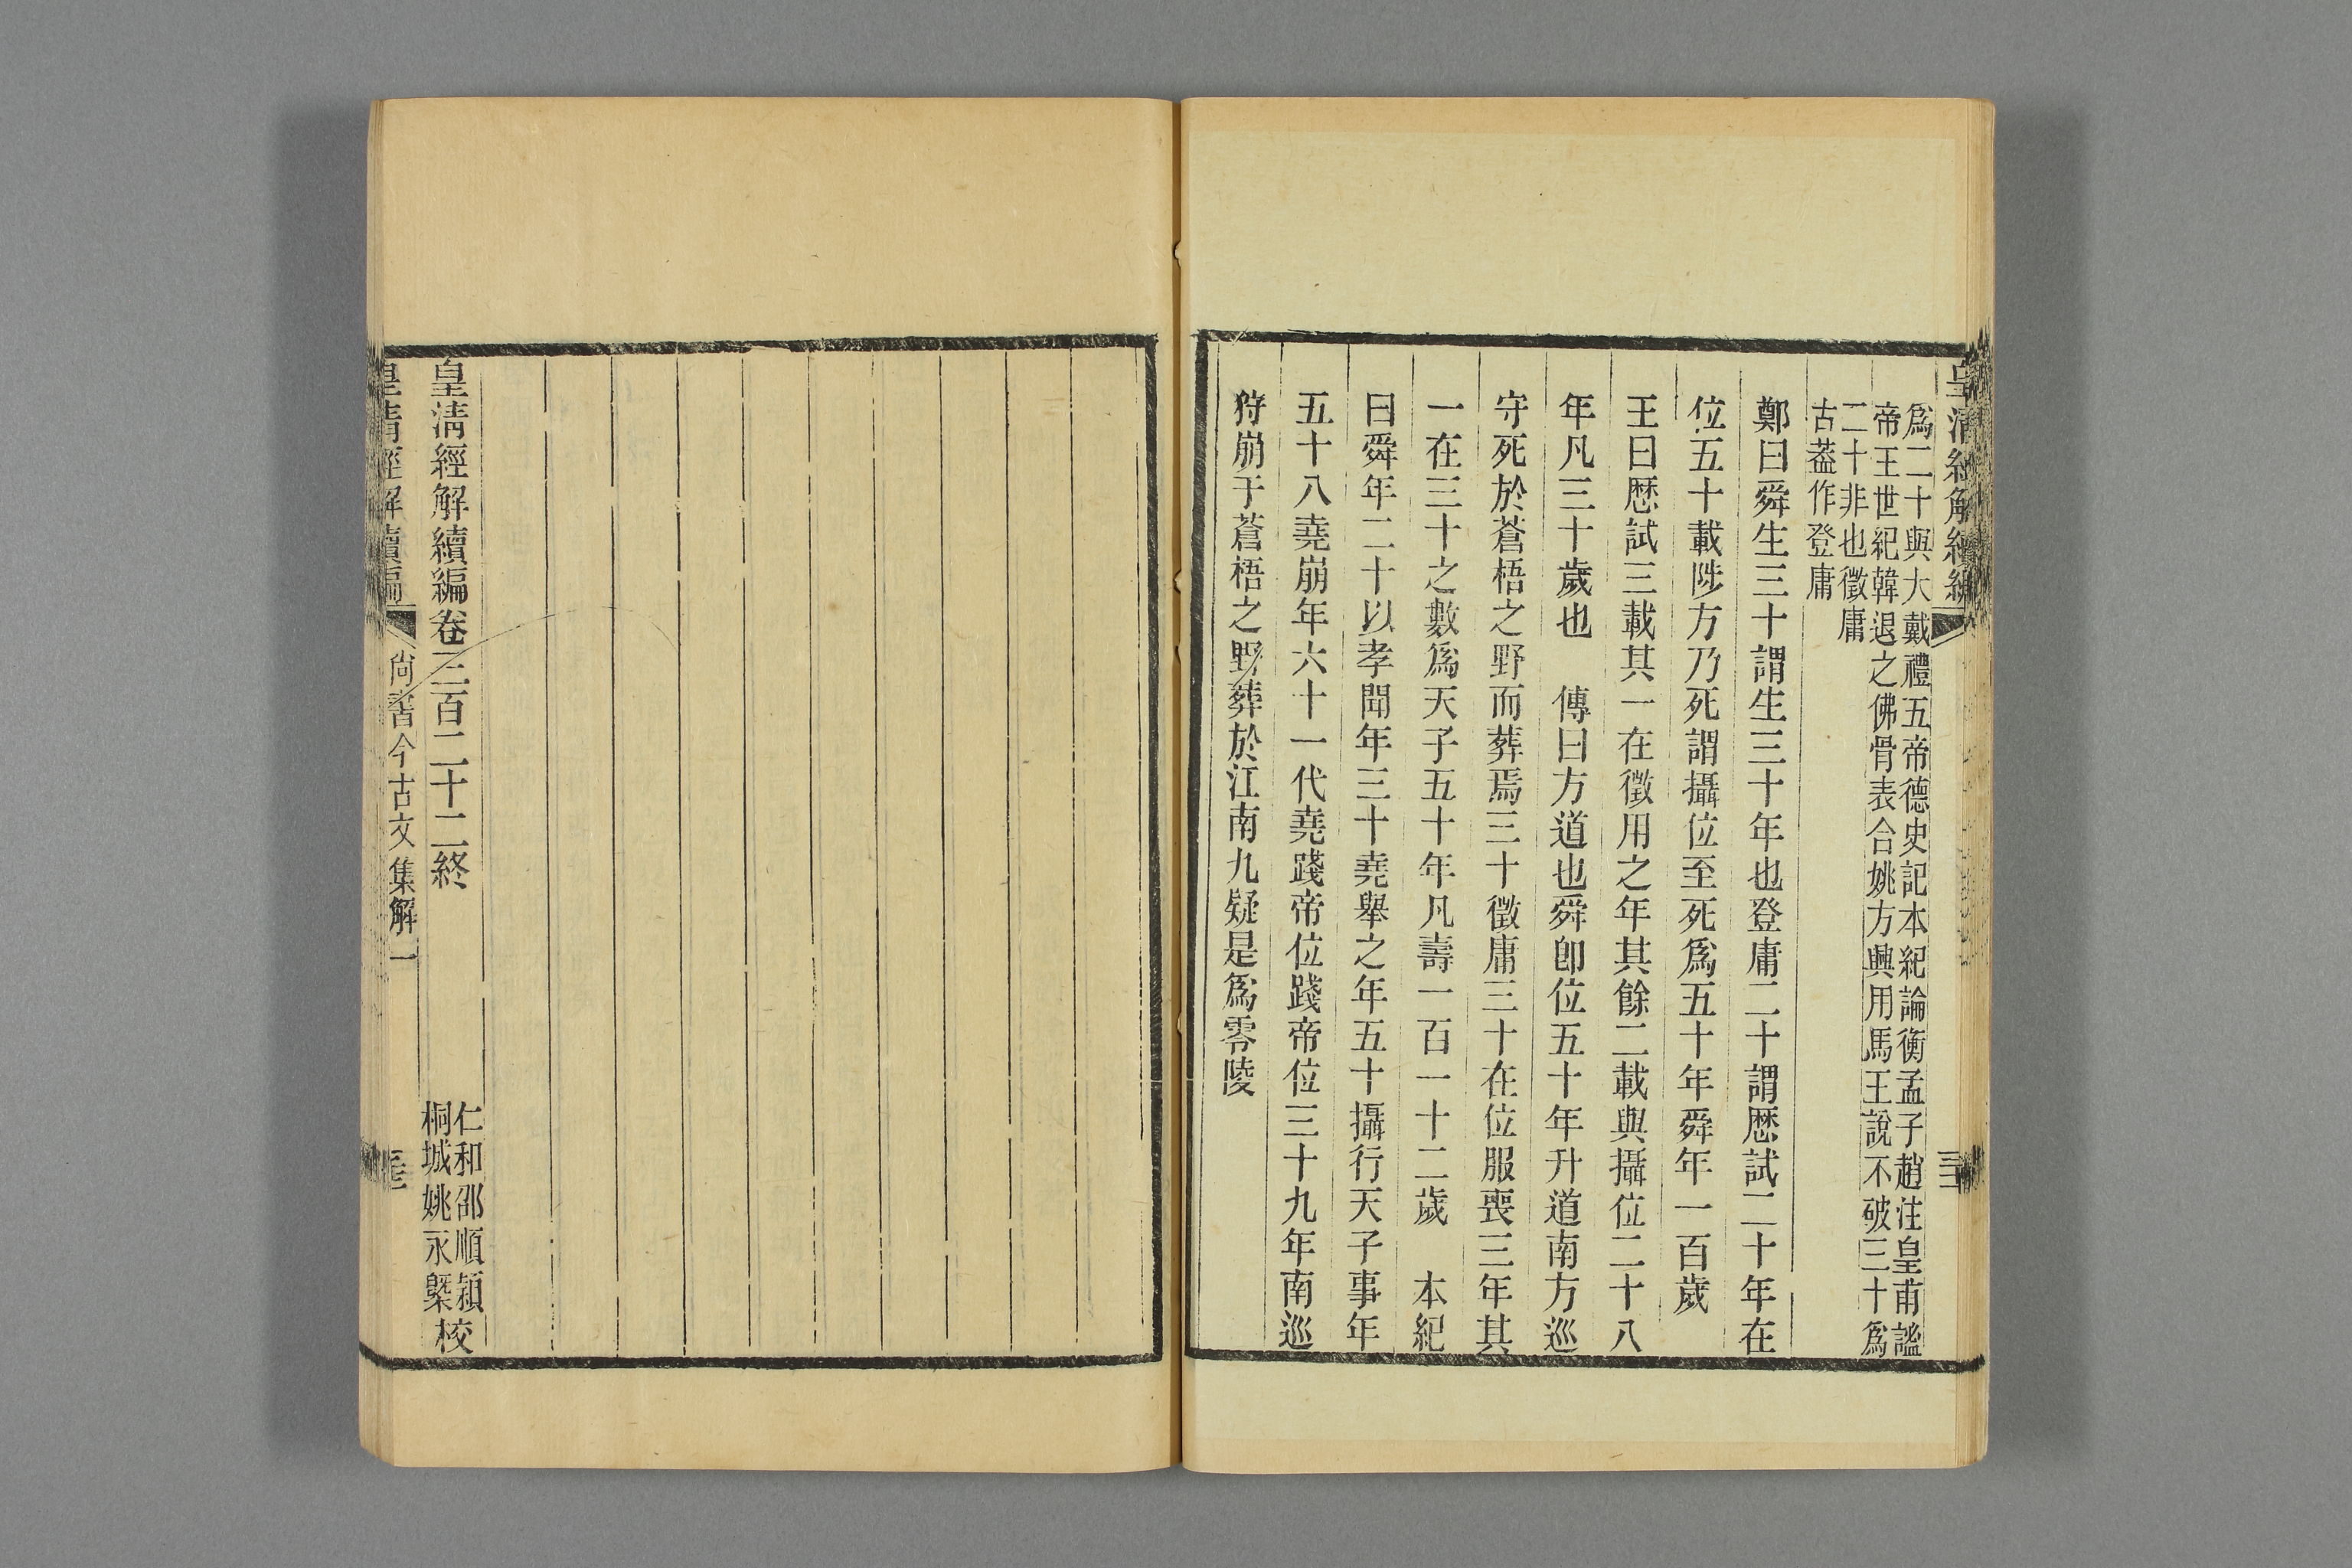 皇清經解續編
爲二十與大戴禮五帝德史記本紀論衡孟子趙注皇甫謐
帝王世紀韓退之佛骨表合姚方興用馬王說不破三十爲
二十非也徵庸
古葢作登庸
鄭曰舜生三十謂生三十年也登庸二十謂歷試二十年在
位五十載陟方乃死謂攝位至死爲五十年舜年一百歲
王曰歷試三載其一在徵用之年其餘二載與攝位二十八
年凡三十歲也　傳曰方道也舜卽位五十年升道南方巡
守死於蒼梧之野而葬焉三十徵庸三十在位服喪三年其
一在三十之數爲天子五十年凡壽一百一十二歲　本紀
曰舜年二十以孝聞年三十堯舉之年五十攝行天子事年
五十八堯崩年六十一代堯踐帝位踐帝位三十九年南巡
狩崩于蒼梧之野葬於江南九疑是爲零陵
皇清經解續編卷三百二十二終
仁和邵順穎
桐城姚永槩
校
皇清經解續編
尚書今古文集解一